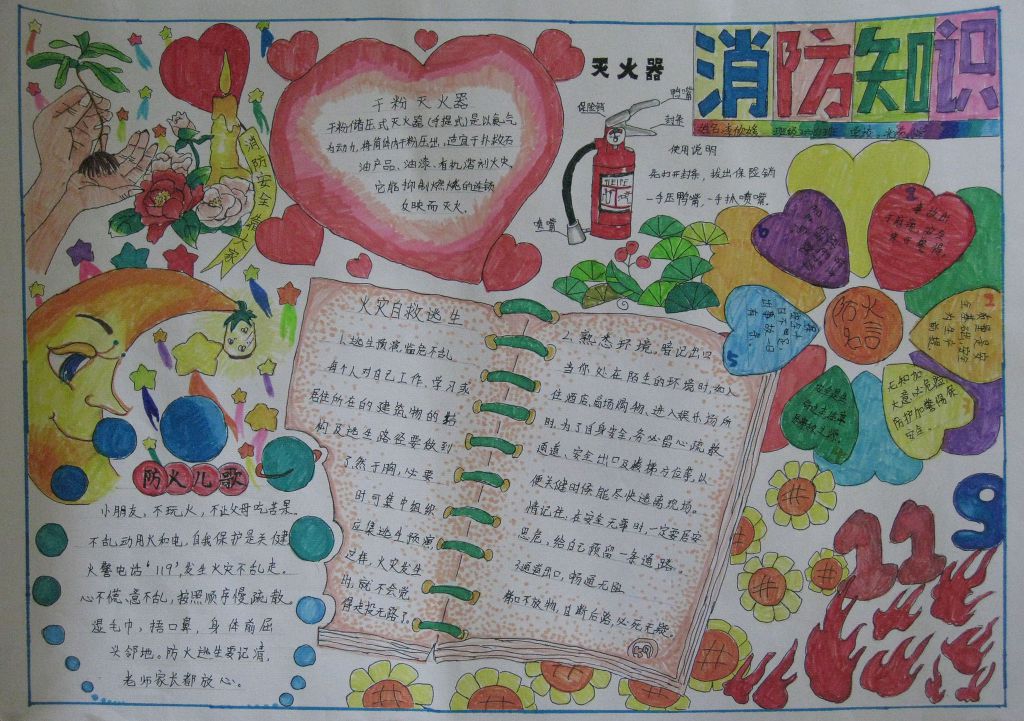 消防知识
灭火器
保险销
鸭嘴
封条
喷嘴
使用说明
先打开封条，拔出保险销
一手压鸭嘴，一手扒喷嘴。
干粉灭火器
干粉储压式灭火器(手提式)是以氮气
为动力,将筒体内干粉压出,适宜于扑救石
油产品、油漆、有机溶剂火灾
它能抑制燃烧的连锁
反映而灭火。
消防安全
火灾自救逃生
1.逃生预演,临危不乱
每个人对自己工作、学习或
居住所在的建筑物的结
构及逃生路径要做到
了然于胸,必要
时可集中组织
应集逃生预演
这样,火灾发生
时,就不会觉
得走投无路了。
2.熟悉环境,暗记出口
当你处在陌生的环境时,如入
住酒店、商场购物、进入娱乐场所
时,为了自身安全,务必留心疏散
通道、安全出口及楼梯方位等,以
便关键时候能尽快逃离现场。
情记住,在安全无事时,一定要居安
思危,给自己预留一条通路。
3通道出口,畅通无阻
梯口不放物,自断后路,必死无疑。
防火儿歌
小朋友,不玩火,不让父母吃苦果。
不乱动用火和电,自我保护是关键
火警电话‘119’,发生火灾不乱走。
心不慌、意不乱,按照顺序慢疏散。
湿毛巾,捂口鼻,身体前屈
头邻地。防火逃生要记清,
老师家长都放心。
防火
名言
质量是安
全基础,安全
为生产
前提。
无知加
大意必危险
防护加警惕保
安全。
119